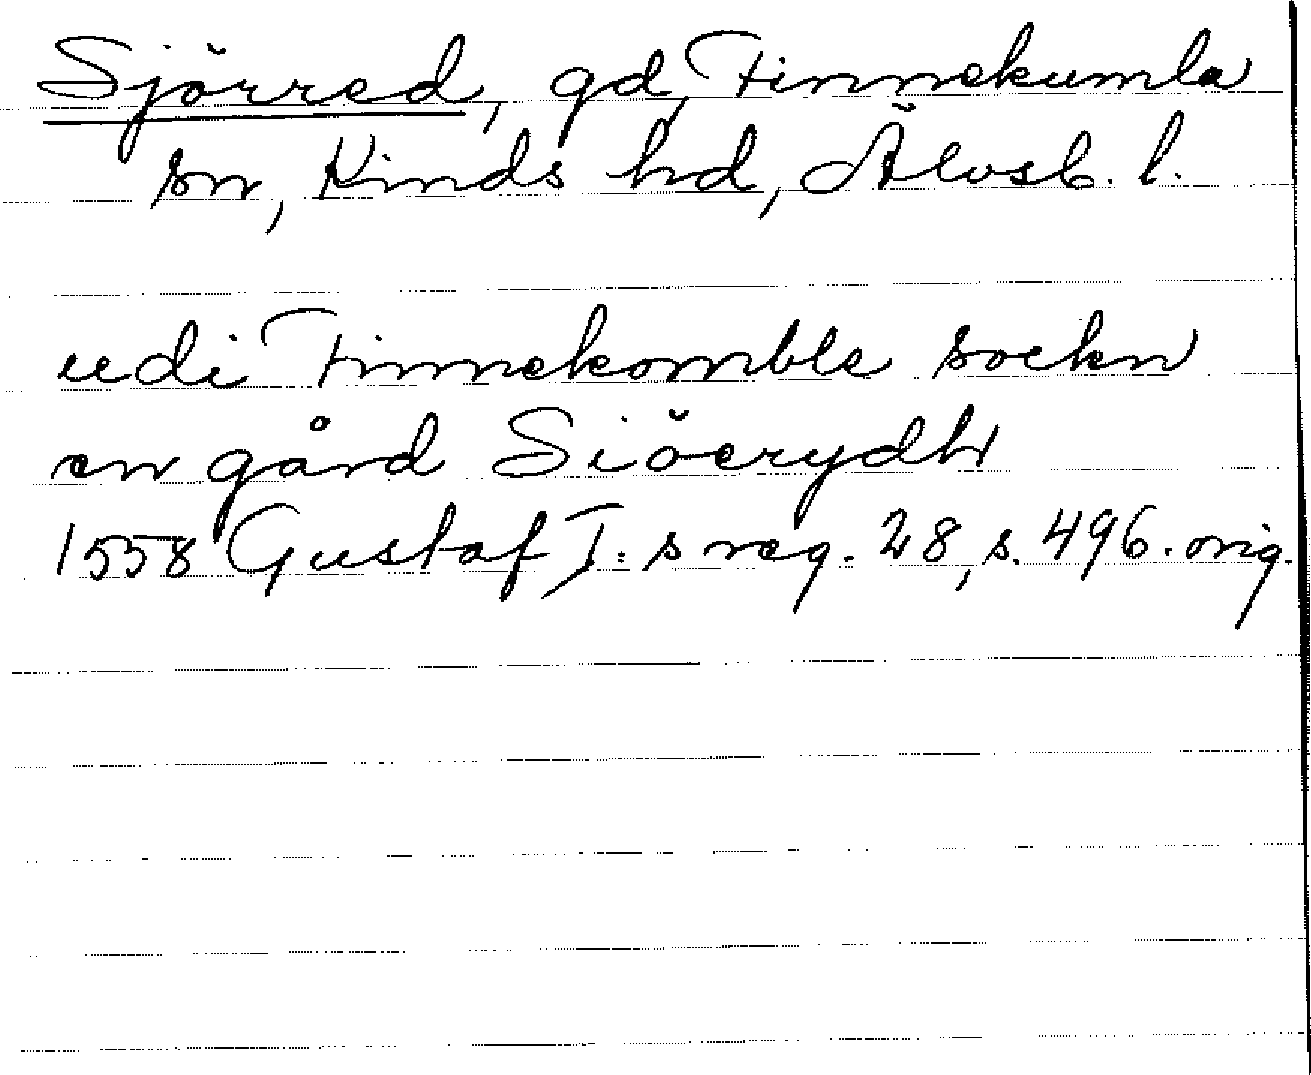 Sjörred, gd, Finnekumla
sn, Kinds hd, Älvsb. l.
udi Finnekomble sockn
en gård Siöerydh
1558 Gustaf I:s reg. 28, s. 496. orig.